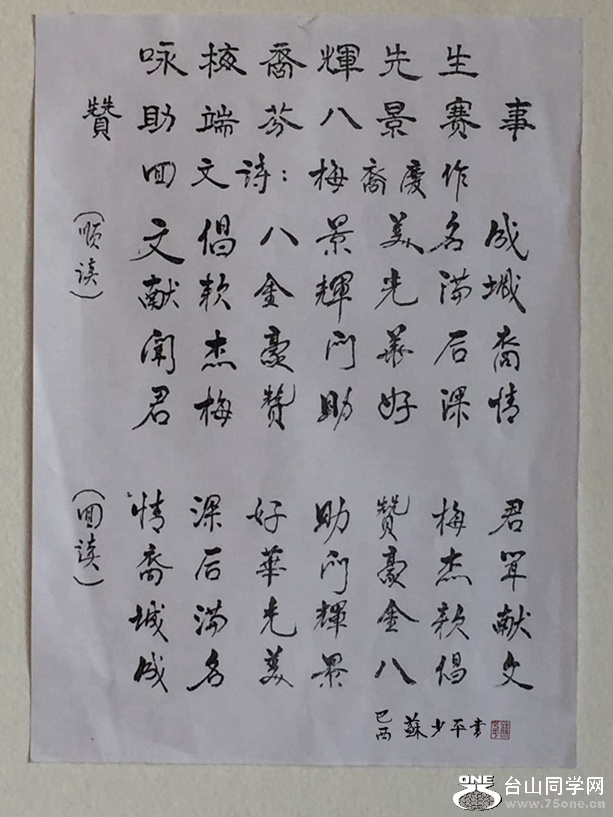 咏梅裔輝先生
贊助端芬八景赛事
回文诗：梅裔慶作
（顺读）
文倡八景美名成
献款金輝光满城
闻杰豪门華后裔
君梅赞助好深情
（回读）
情深好助赞梅君
裔后華门豪杰闻
城满光輝金款献
成名美景八倡文
蘇少平書
ONE 台山同学网
www.75one.cn